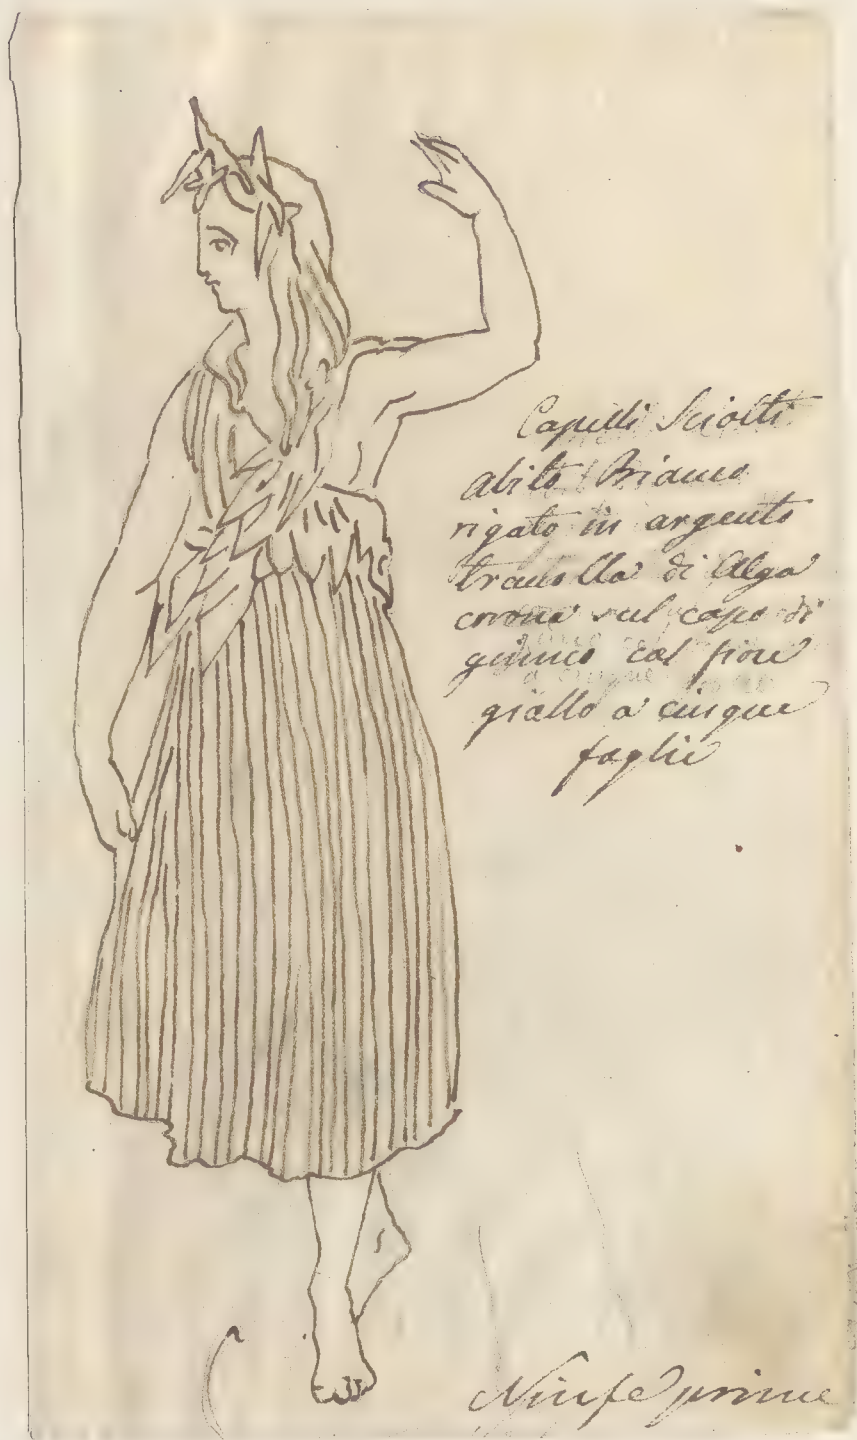 Capelli Sciolti
abito Bianco
rigato in argento
tracolla di Alga
corona sul capo di
giunco col fiore
giallo a cinque
foglie
Ninfe prime